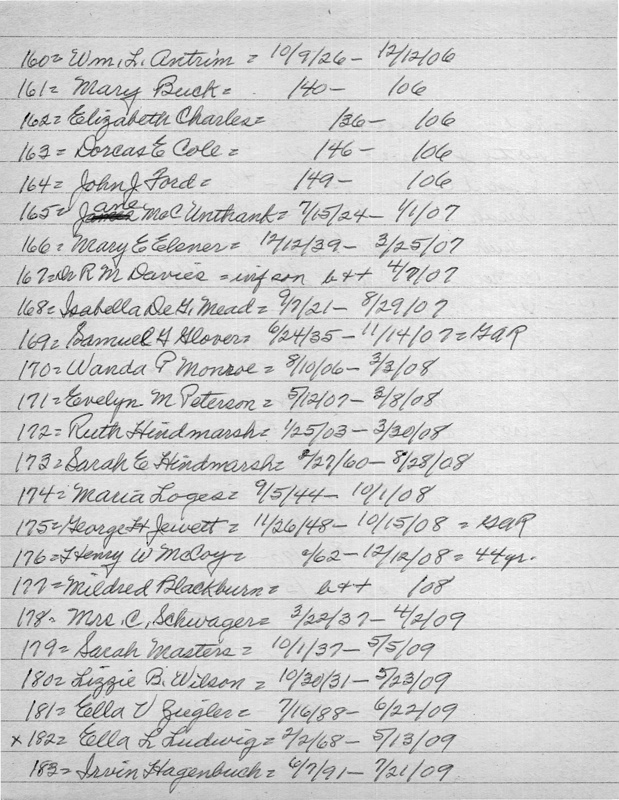 160= Wm. L. Antrim = 10/9/26- 12/12/06
161= Mary Buck = /40- /06
162= Elizabeth Charles= /36- /06
163= Dorcas E Cole = /46- /06
164= John J Ford = /49- /06
165= Jane McC Unthank= 7/15/24- 4/1/07
166= Mary E Elsner= 12/12/39- 3/25/07
167= Dr R M Davies = inf son b++ 4/7/07
168= Isabella De G. Mead= 9/7/21- 8/29/07
169= Samuel G Glover= 6/24/35- 11/14/07 = GAR
170= Wanda P Monroe = 8/10/06- 3/3/08
171= Evelyn M Peterson = 5/12/07- 3/8/08
172= Ruth Hindmarsh= 1/25/03- 3/30/08
173= Sarah E Hindmarsh= 8/27/60- 8/28/08
174= Maria Loges= 9/5/44- 10/1/08
175= George H Jewett = 11/26/48- 10/15/08 = GAR
176= Henry W McCoy= /62- 12/12/08 = 44yr.
177= Mildred Blackburn= b++ /08
178= Mrs. C. Schwager= 3/22/37- 4/2/09
179= Sarah Masters = 10/1/37- 5/5/09
180= Lizzie B. Wilson = 10/30/31- 5/23/09
181= Ella V Zugler= 7/16/88- 6/22/09
x 182= Ella L Ludwig= 2/2/68- 5/13/09
183= Irvin Hagenbuch= 6/7/91- 7/21/09